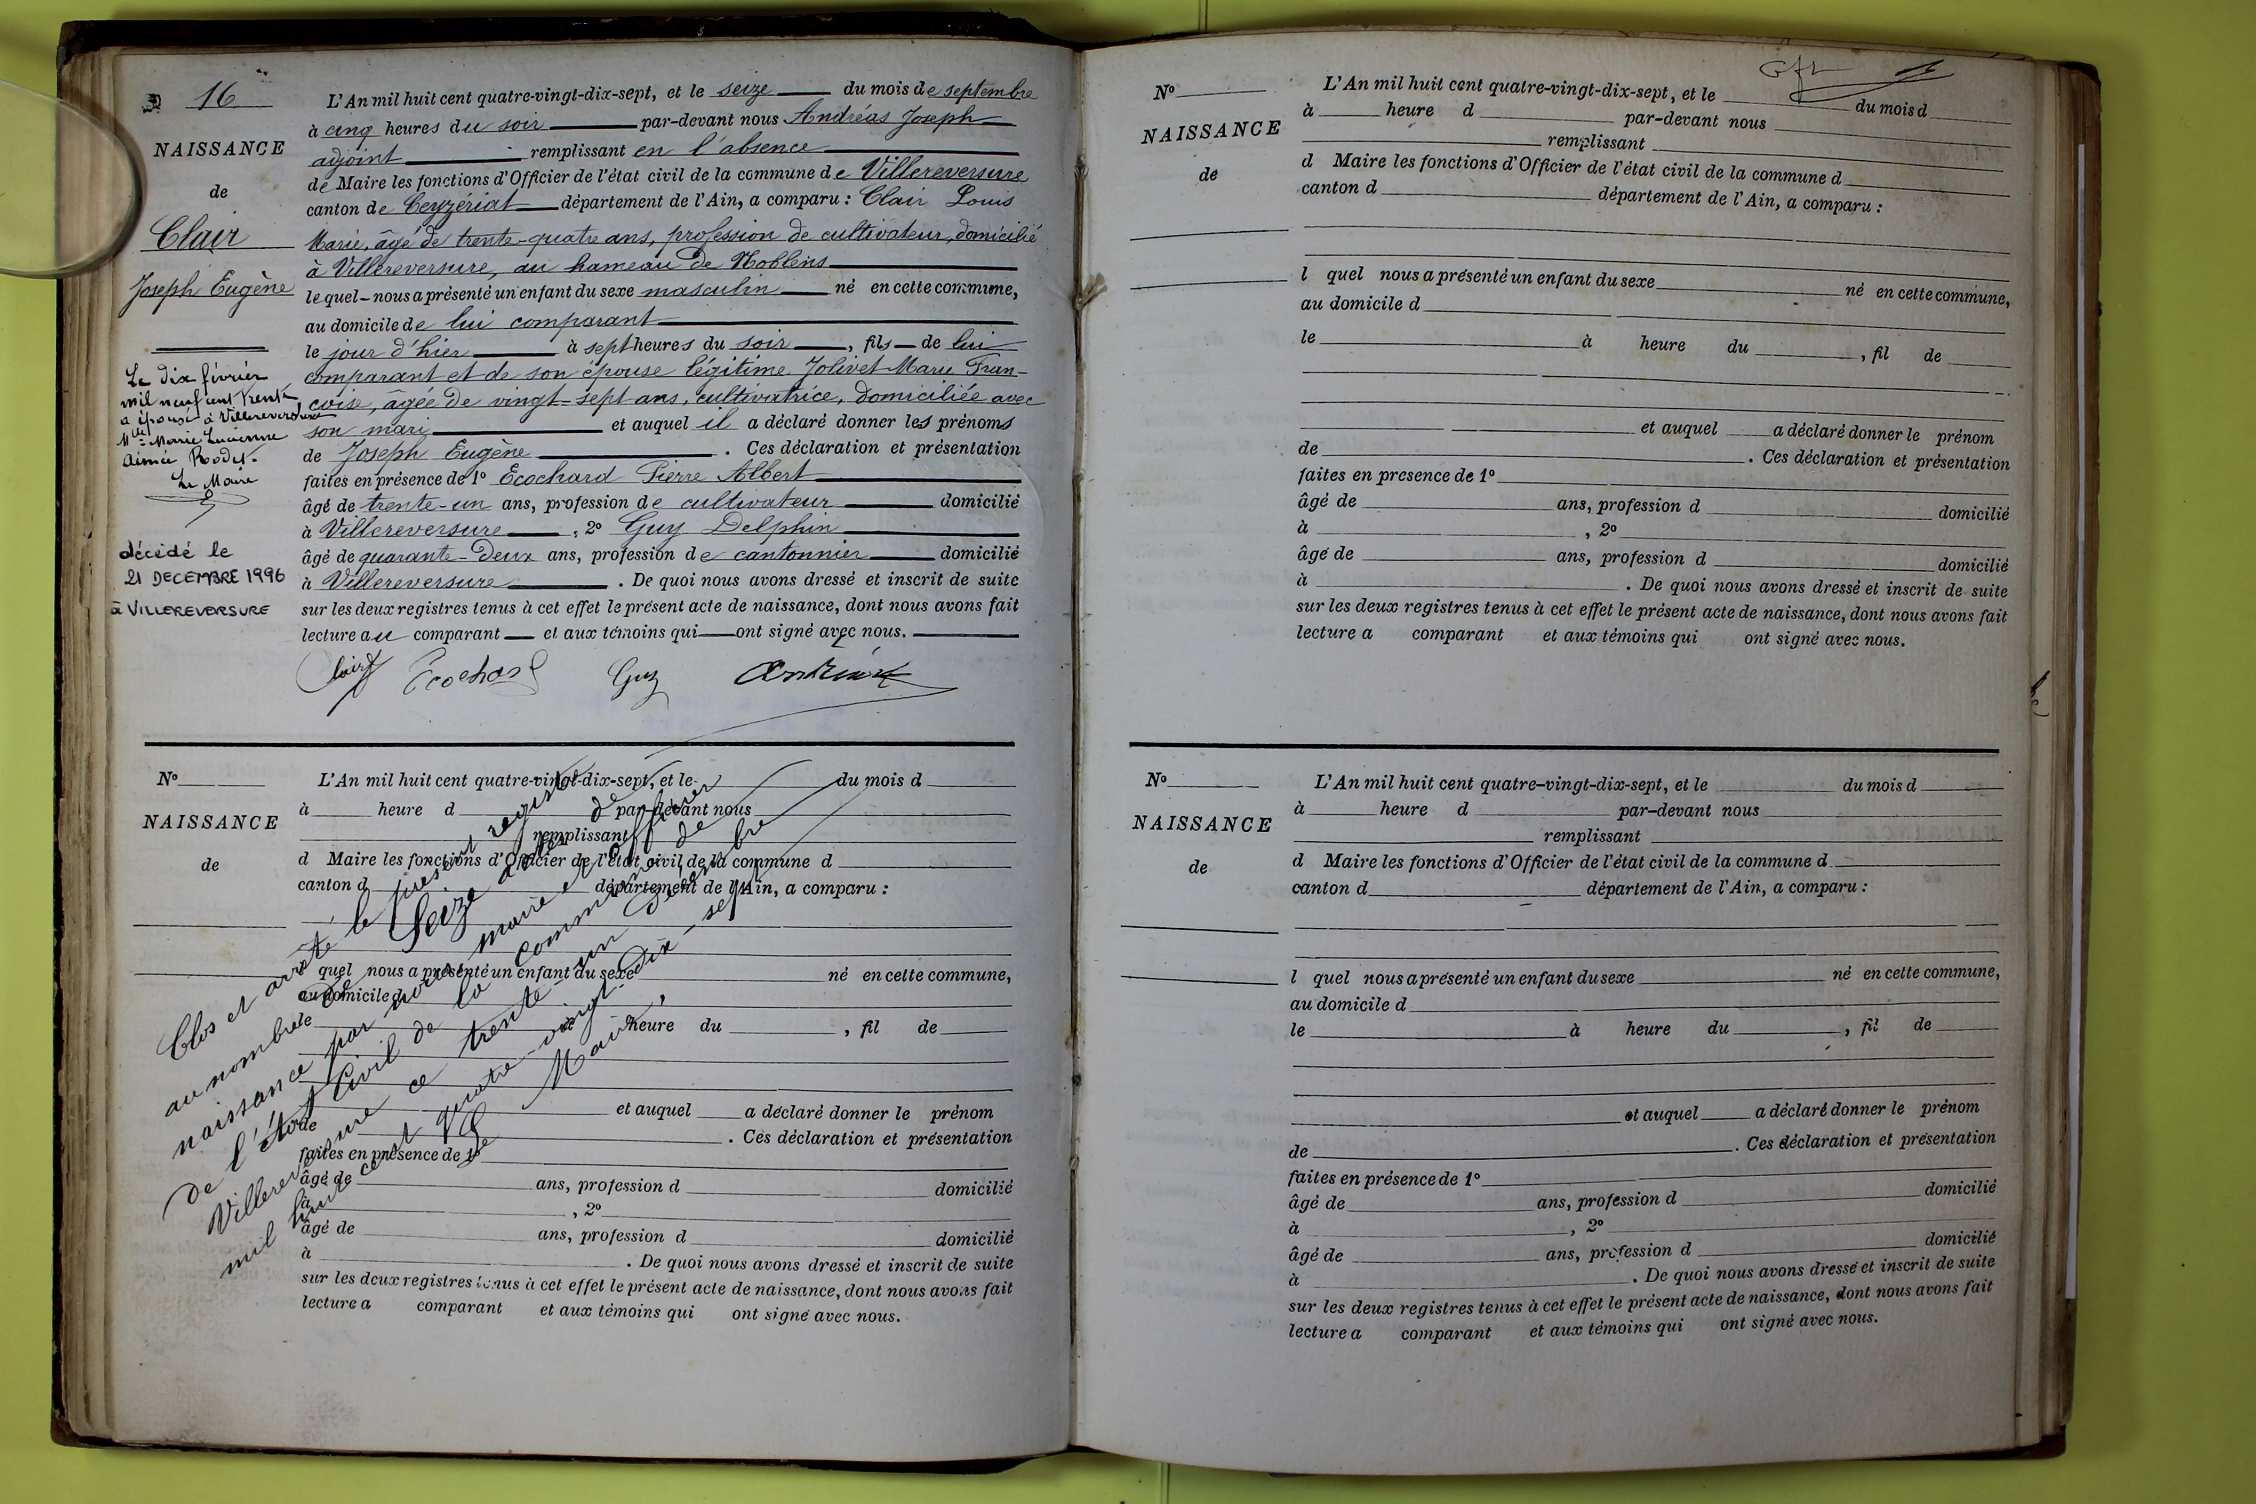 16
NAISSANCE
de
Clair
Joseph Eugène
Le dix février
mil neuf cent trente
a épousé à Villereversure
Mlle Marie Lucienne
Aimée Rodet.
Le Maire
décédé le
21 DECEMBRE 1996
à VILLEREVERSURE
L'An mil huit cent quatre-vingt-dix-sept, et le seize du mois de septembre
à cinq heures du soir par-devant nous Andréas Joseph
adjoint remplissant en l'absence
de Maire les fonctions d'Officier de l'état civil de la commune de Villereversure
canton de Ceyzériat département de l'Ain, a comparu : Clair Louis
Marie, âgé de trente-quatre ans, profession de cultivateur, domicilié
à Villereversure, au hameau de Noblens
lequel nous a présenté un enfant du sexe masculin né en cette commune,
au domicile de lui comparant
le jour d'hier à sept heures du soir, fils de lui
comparant et de son épouse légitime Jolivet Marie Fran-
çoise, âgée de vingt-sept ans, cultivatrice, domiciliée avec
son mari et auquel il a déclaré donner les prénoms
de Joseph Eugène. Ces déclaration et présentation
faites en présence de 1° Ecochard Pierre Albert
âgé de trente-un ans, profession de cultivateur domicilié
à Villereversure, 2° Guy Delphin
âgé de quarante-deux ans, profession de cantonnier domicilié
à Villereversure. De quoi nous avons dressé et inscrit de suite
sur les deux registres tenus à cet effet le présent acte de naissance, dont nous avons fait
lecture au comparant et aux témoins qui ont signé avec nous.
Clair Ecochard Guy Andréas
N°
NAISSANCE
de
L'An mil huit cent quatre-vingt-dix-sept, et le du mois d
à heure d par-devant nous
remplissant
d Maire les fonctions d'Officier de l'état civil de la commune d
canton d département de l'Ain, a comparu :
quel nous a présenté un enfant du sexe né en cette commune,
au domicile d
le à heure du , fil de
et auquel a déclaré donner le prénom
de . Ces déclaration et présentation
faites en présence de 1°
âgé de ans, profession d domicilié
à , 2°
âgé de ans, profession d domicilié
à . De quoi nous avons dressé et inscrit de suite
sur les deux registres tenus à cet effet le présent acte de naissance, dont nous avons fait
lecture a comparant et aux témoins qui ont signé avec nous.
Clos et arrêté le présent registre
au nombre de Seize actes de
naissance par nous maire et officier
de l'état Civil de la commune de
Villereversure ce trente-un décembre
mil huit cent quatre-vingt-dix-sept
Le Maire,
N°
NAISSANCE
de
L'An mil huit cent quatre-vingt-dix-sept, et le du mois d
à heure d par-devant nous
remplissant
d Maire les fonctions d'Officier de l'état civil de la commune d
canton d département de l'Ain, a comparu :
l quel nous a présenté un enfant du sexe né en cette commune,
au domicile d
le à heure du , fil de
et auquel a déclaré donner le prénom
de . Ces déclaration et présentation
faites en presence de 1°
âgé de ans, profession d domicilié
à , 2°
âgé de ans, profession d domicilié
à . De quoi nous avons dressé et inscrit de suite
sur les deux registres tenus à cet effet le présent acte de naissance, dont nous avons fait
lecture a comparant et aux témoins qui ont signé avec nous.
N°
NAISSANCE
de
L'An mil huit cent quatre-vingt-dix-sept, et le du mois d
à heure d par-devant nous
remplissant
d Maire les fonctions d'Officier de l'état civil de la commune d
canton d département de l'Ain, a comparu :
l quel nous a présenté un enfant du sexe né en cette commune,
au domicile d
le à heure du , fil de
et auquel a déclaré donner le prénom
de . Ces déclaration et présentation
faites en présence de 1°
âgé de ans, profession d domicilié
à , 2°
âgé de ans, profession d domicilié
à . De quoi nous avons dressé et inscrit de suite
sur les deux registres tenus à cet effet le présent acte de naissance, dont nous avons fait
lecture a comparant et aux témoins qui ont signé avec nous.